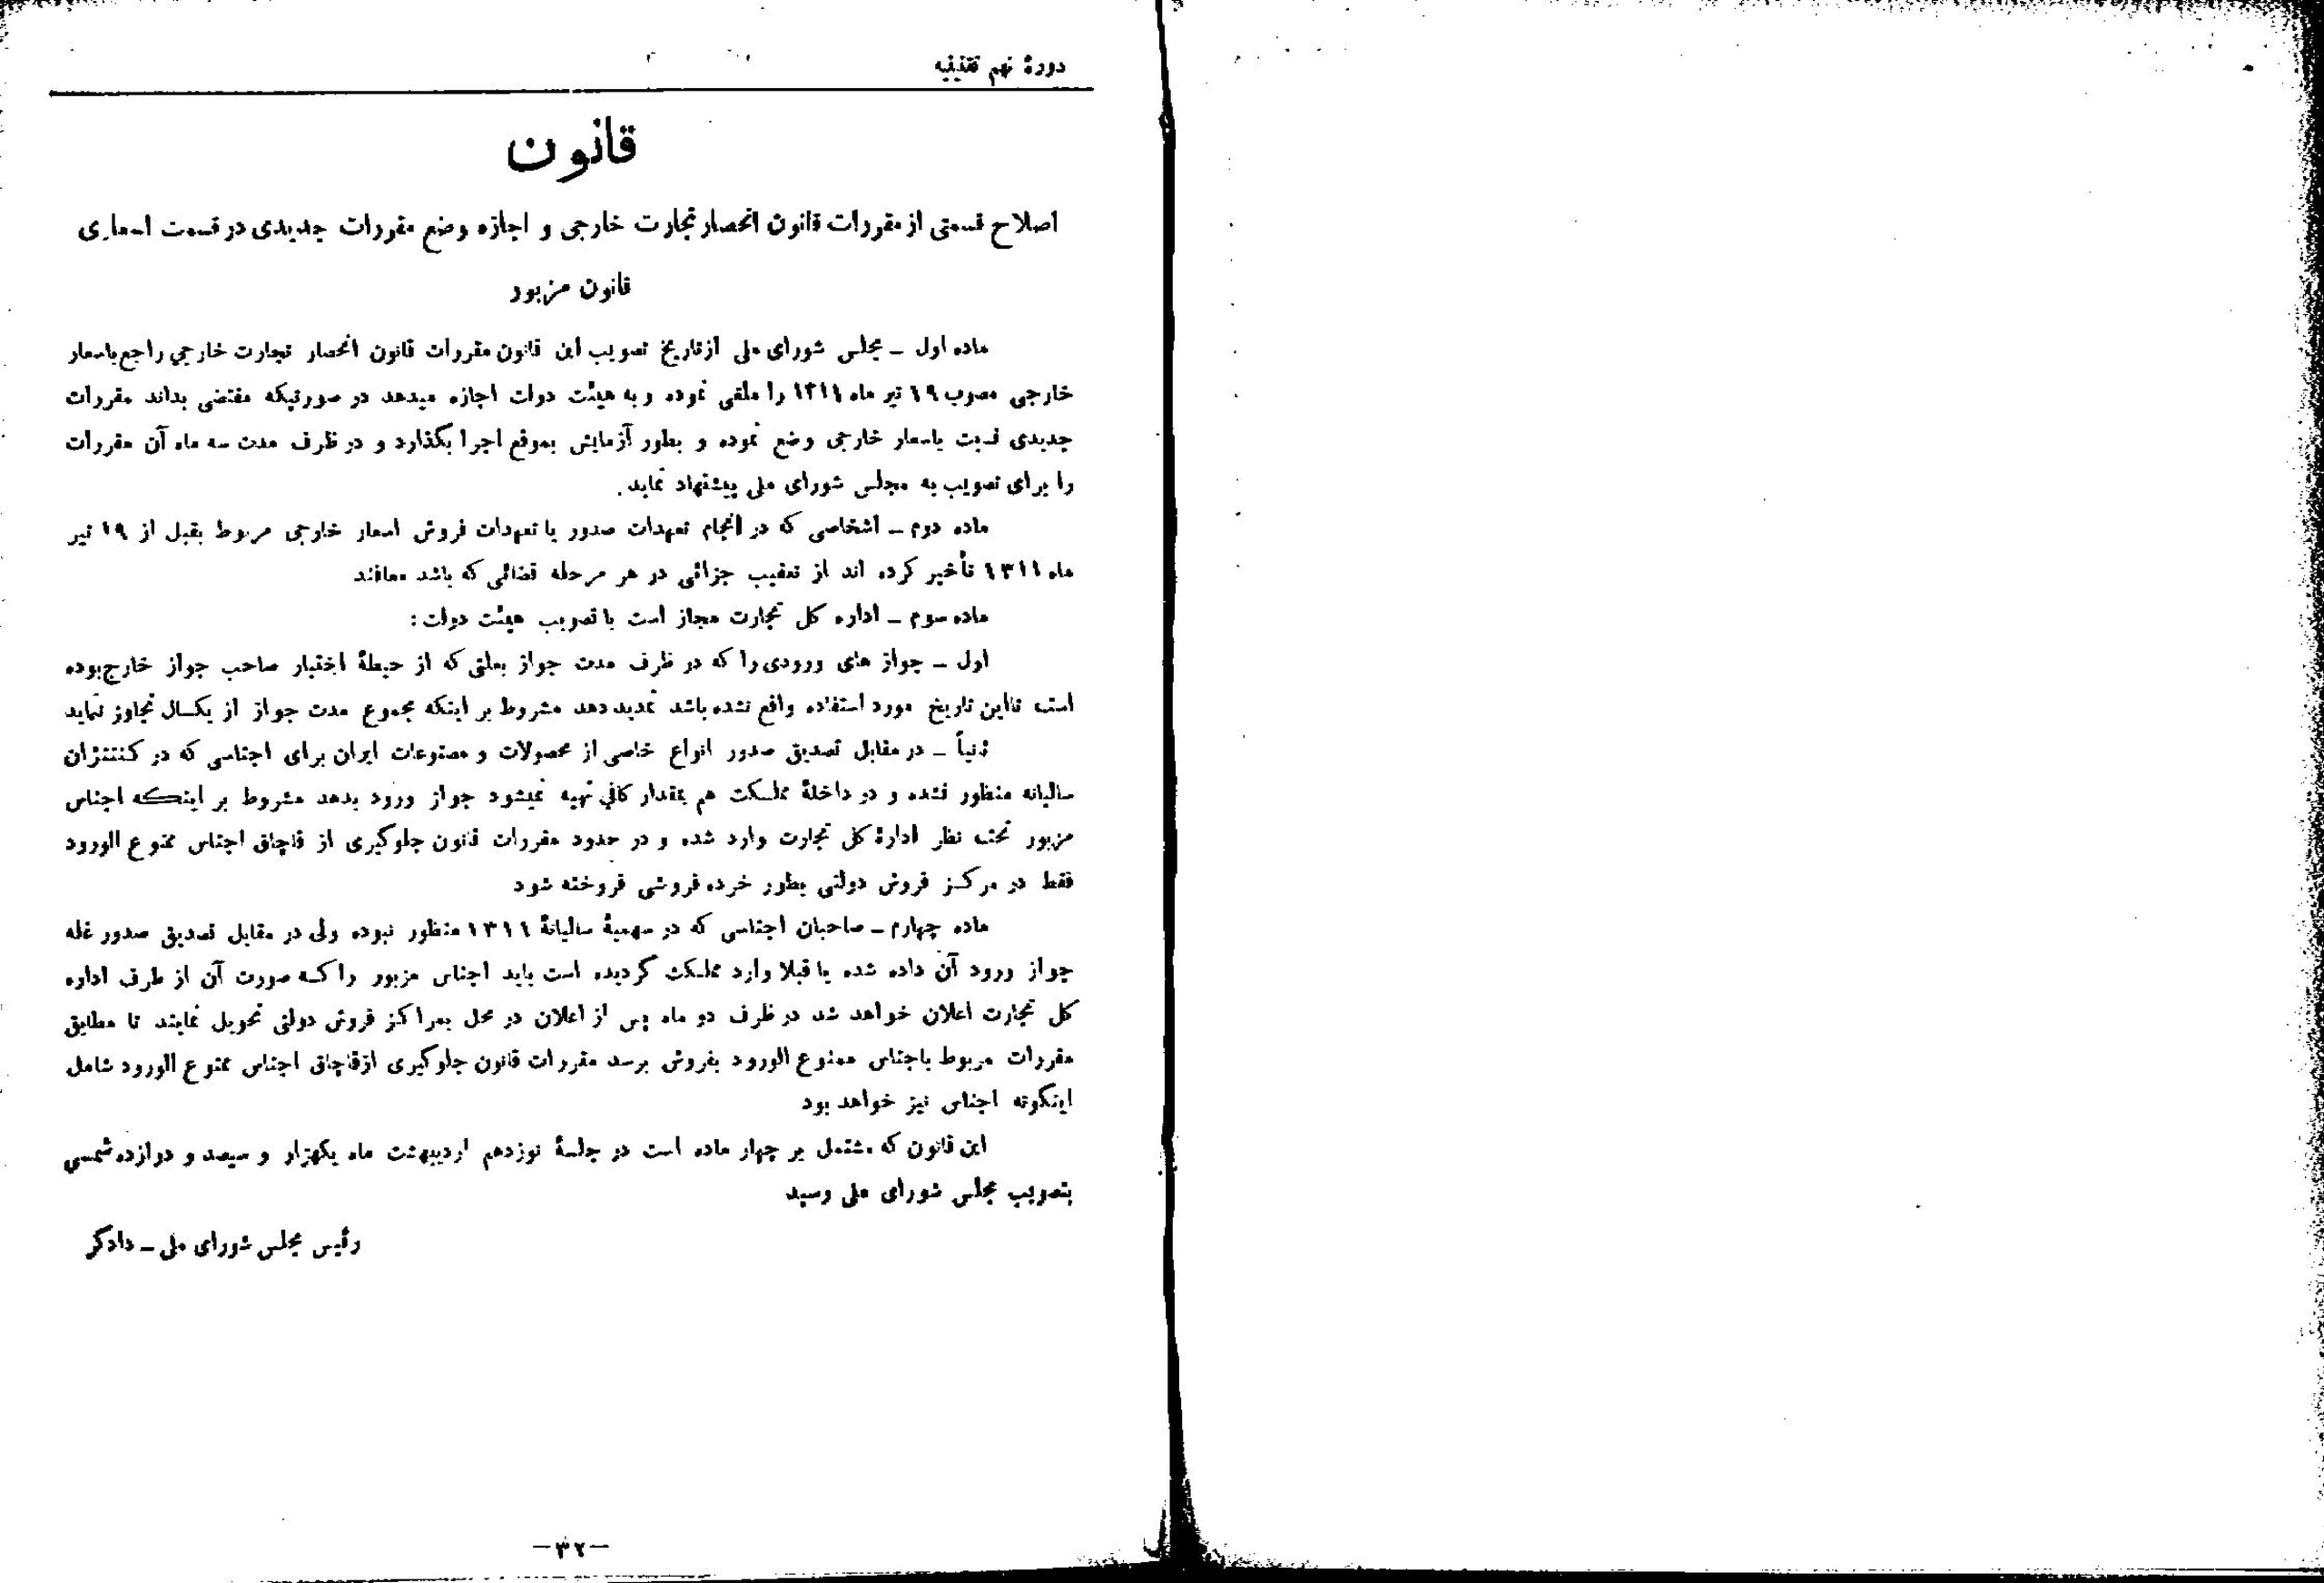 دورۀ نهم تقنینیه
قانون
اصلاح قسمتی از مقررات قانون انحصار تجارت خارجی و اجازه وضع مقررات جدیدی در قسمت اسعاری
قانون مزبور
ماده اول ـ مجلس شورای ملی از تاریخ تصویب این قانون مقررات قانون انحصار تجارت خارجی راجع باسعار
خارجی مصوب ۱۹ تیر ماه ۱۳۱۱ را ملقی نموده و به هیئت دولت اجازه میدهد در صورتیکه مقتضی بداند مقررات
جدیدی نسبت باسعار خارجی وضع نموده و بطور آزمایش بموقع اجرا بگذارد و در ظرف مدت سه ماه آن مقررات
را برای تصویب به مجلس شورای ملی پیشنهاد نماید.
ماده دوم ـ اشخاصی که در انجام تعهدات صدور یا تعهدات فروش اسعار خارجی مربوط بقبل از ۱۹ تیر
ماه ۱۳۱۱ تأخیر کرده اند از تعقیب جزائی در هر مرحله قضائی که باشد معافند
ماده سوم ـ اداره کل تجارت مجاز است با تصویب هیئت دولت:
اول ـ جواز های ورودی را که در ظرف مدت جواز بعلتی که از حیطۀ اختیار صاحب جواز خارج بوده
است تا این تاریخ مورد استفاده واقع نشده باشد تمدید دهد مشروط بر اینکه مجموع مدت جواز از یکسال تجاوز ننماید
ثنیاً ـ در مقابل تصدیق صدور انواع خاصی از محصولات و مصنوعات ایران برای اجناسی که در کنتنژان
سالیانه منظور نشده و در داخلۀ مملکت هم بمقدار کافی تهیه نمیشود جواز ورود بدهد مشروط بر اینکه اجناس
مزبور تحت نظر ادارۀ کل تجارت وارد شده و در حدود مقررات قانون جلوگیری از قاچاق اجناس ممنوع الورود
فقط در مرکز فروش دولتی بطور خرده فروشی فروخته شود
ماده چهارم ـ صاحبان اجناسی که در سهمیۀ سالیانۀ ۱۳۱۱ منظور نبوده ولی در مقابل تصدیق صدور غله
جواز ورود آن داده شده یا قبلا وارد مملکت گردیده است باید اجناس مزبور را که صورت آن از طرف اداره
کل تجارت اعلان خواهد شد در ظرف دو ماه پس از اعلان در محل بمراکز فروش دولتی تحویل نمایند تا مطابق
مقررات مربوط باجناس ممنوع الورود بفروش برسد مقررات قانون جلوگیری از قاچاق اجناس ممنوع الورود شامل
اینگونه اجناس نیز خواهد بود
این قانون که مشتمل بر چهار ماده است در جلسۀ نوزدهم اردیبهشت ماه یکهزار و سیصد و دوازده شمسی
بتصویب مجلس شورای ملی رسید
رئیس مجلس شورای ملی ـ دادگر
—۳۲—